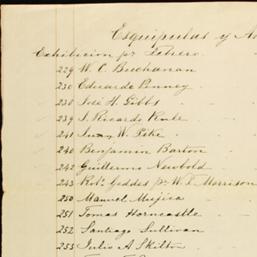 Esquipulas y
Exhibicion pr Febrero
229 W. C. Buchanan
230 Eduardo Penney
230 José H. Gibbs
239 J. Ricardo
241 Juan W. Pike
240 Benjamin Barton
242 Guillermo Newbold
243 Robt Geddes pr W. L. Morrison
250 Manuel Mujica
251 Tomas Horncastle
252 Santiago Sullivan
253 Julio A Skilton